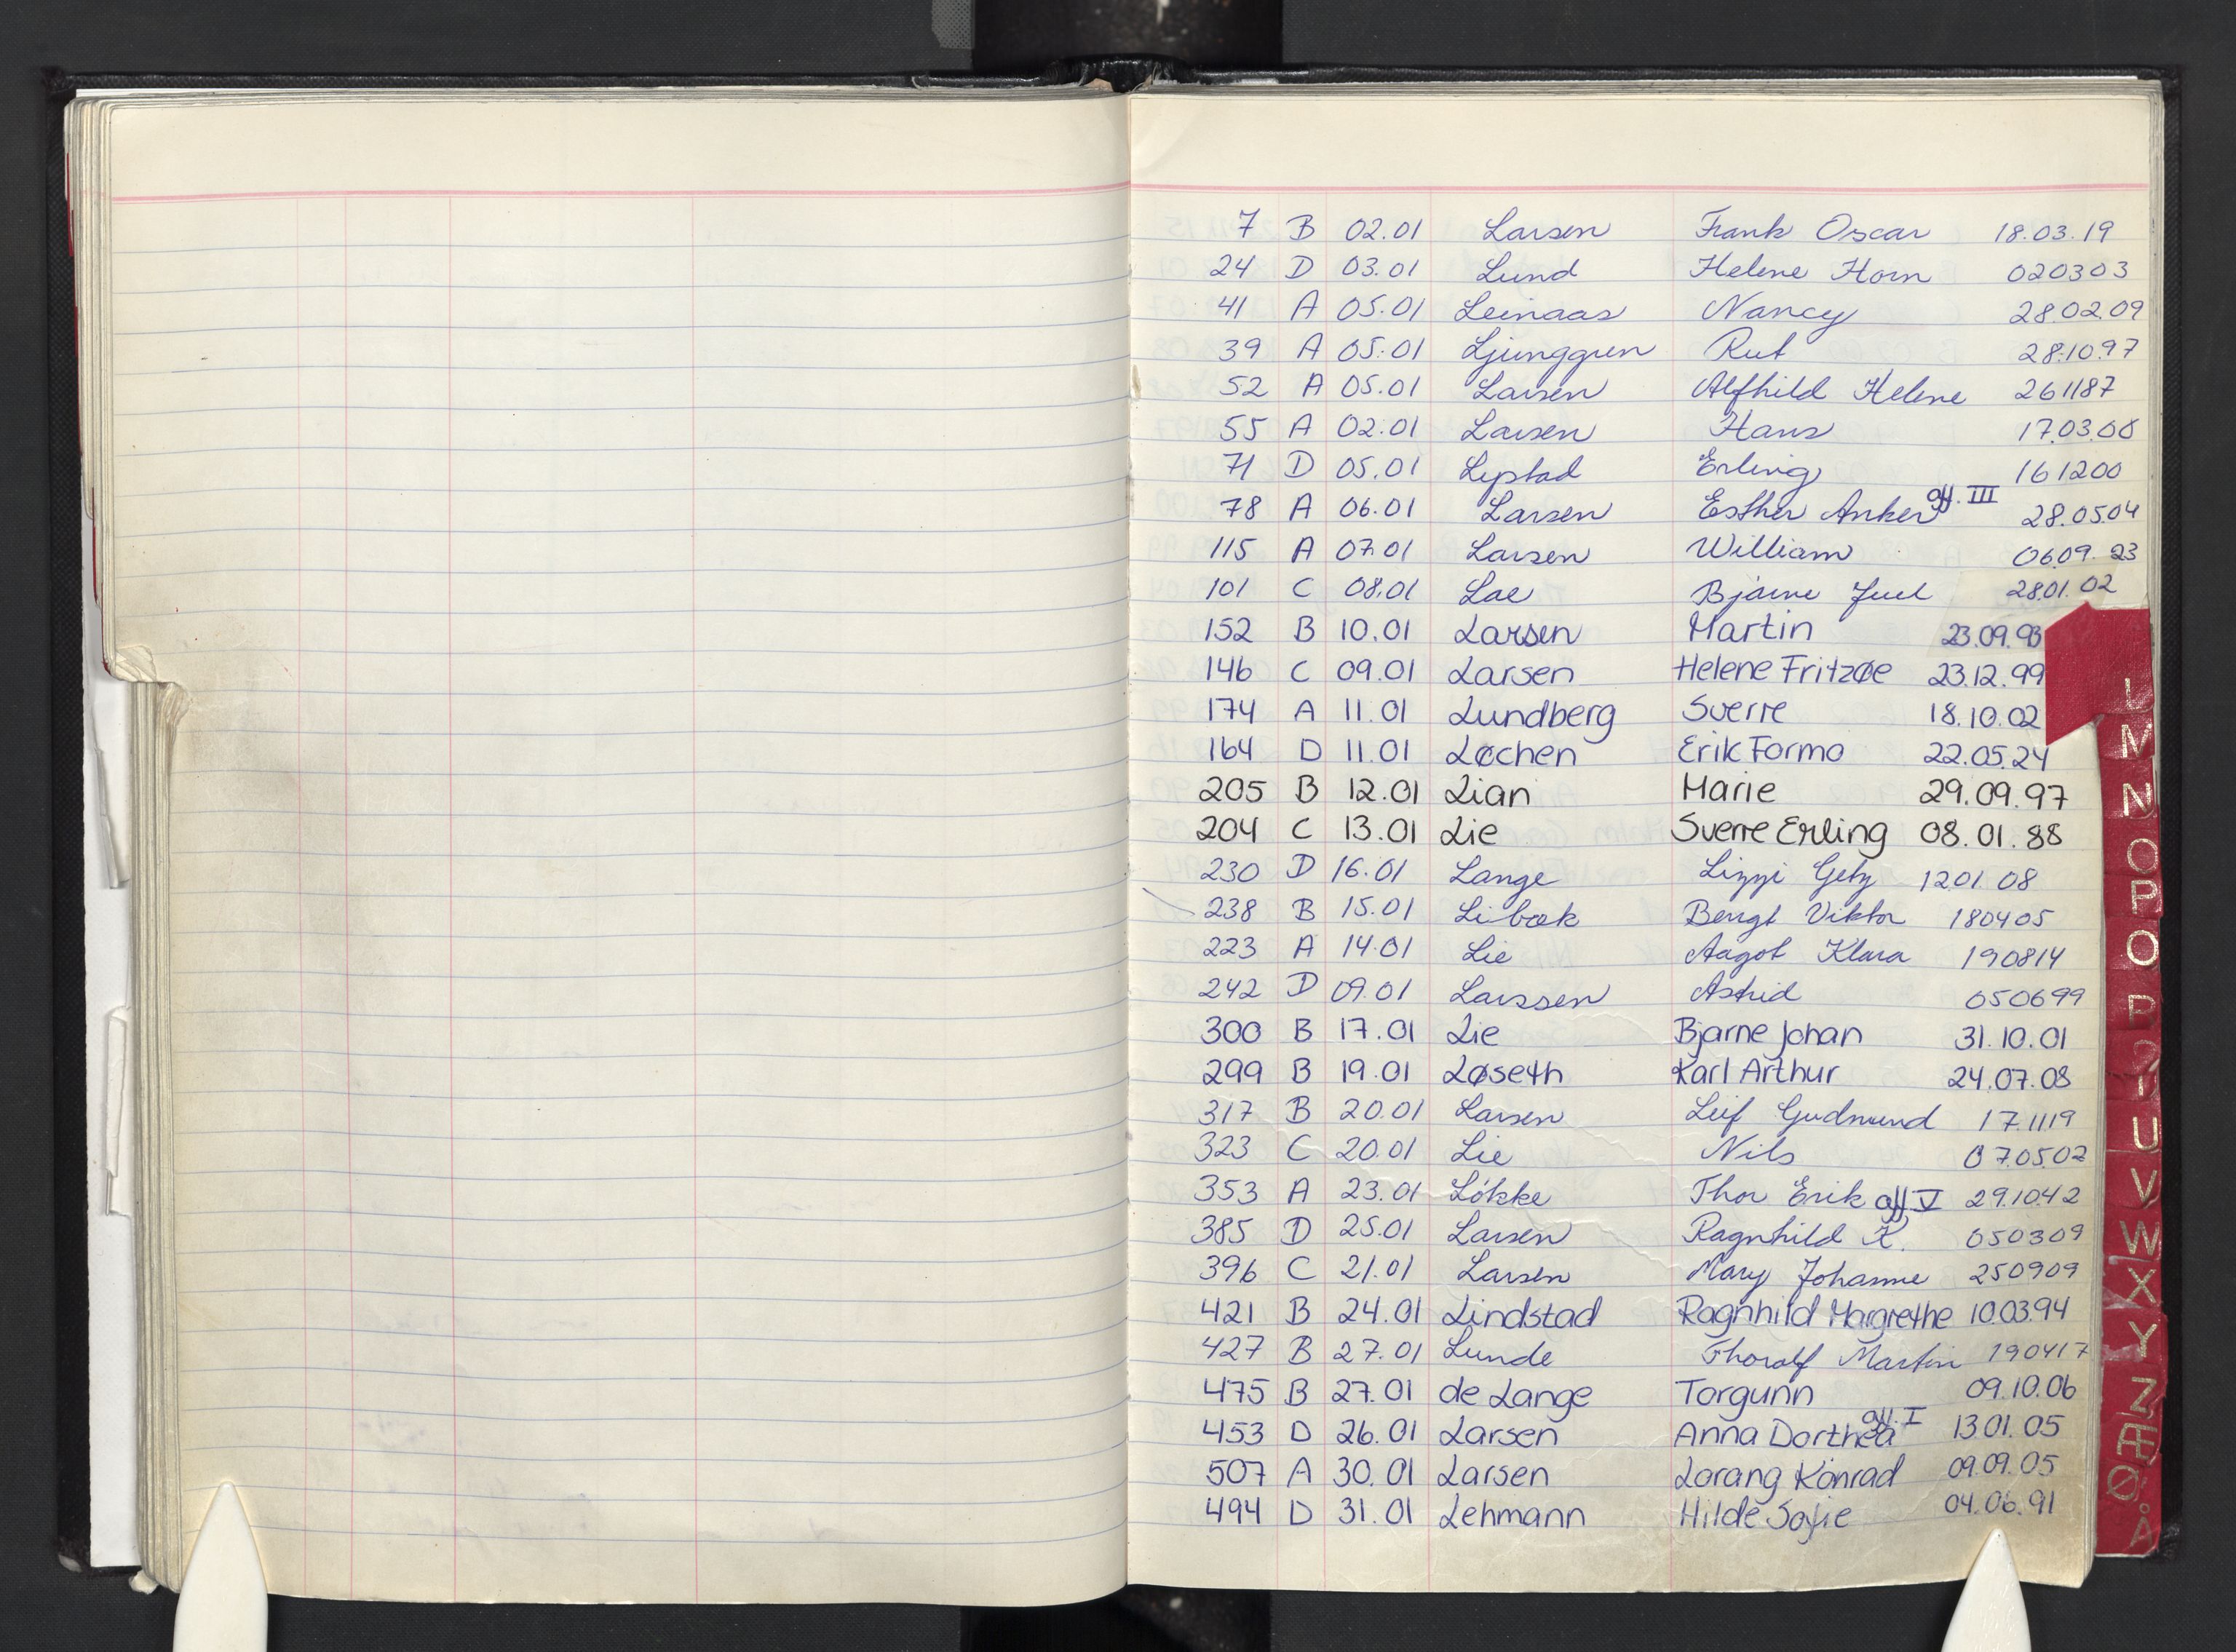 7 B 02.01 Larsen Frank Oscar 18.03.19
24 D 03.01 Lund Helene Horn 020303
41 A 05.01 Leinaas Nancy 28.02.09
39 A 05.01 Ljunggren Rut 28.10.97
52 A 05.01 Larsen Alfhild Helene 261187
55 A 02.01 Larsen Hans 17.03.08
71 D 05.01 Lystad Erling 161200
78 A 06.01 Larsen Esther Anker aff. III 28.05.04
115 A 07.01 Larsen William 06.09.23
101 C 08.01 Lae Bjarne Juel 28.01.02
152 B 10.01 Larsen Martin 23.09.93
146 C 09.01 Larsen Helene Fritzøe 23.12.99
174 A 11.01 Lundberg Sverre 18.10.02
164 D 11.01 Løchen Erik Formo 22.05.24
205 B 12.01 Lian Marie 29.09.97
204 C 13.01 Lie Sverre Erling 08.01.88
230 D 16.01 Lange Lizzi Getz 1201.08
238 B 15.01 Libæk Bengt Viktor 180405
223 A 14.01 Lie Aagot Klara 190814
242 D 09.01 Larssen Astrid 050699
300 B 17.01 Lie Bjarne Johan 31.10.01
299 B 19.01 Løseth Karl Arthur 24.07.08
317 B 20.01 Larsen Leif Gudmund 17.1119
323 C 20.01 Lie Nils 07.05.02
353 A 23.01 Løkke Thor Erik aff V 29.10.42
385 D 25.01 Larsen Ragnhild K. 050309
396 C 21.01 Larsen Mary Johanne 250909
421 B 24.01 Lindstad Ragnhild Margrethe 10.03.94
427 B 27.01 Lunde Thoralf Martin 190417
475 B 27.01 de Lange Torgunn 09.10.06
453 D 26.01 Larsen Anna Dorthea aff. I 13.01.05
507 A 30.01 Larsen Lorang Konrad 09.09.05
494 D 31.01 Lehmann Hilde Sofie 04.06.91
L
M
N
O
P
Q
U
V
W
X
Y
Z
Æ
Ø
Å